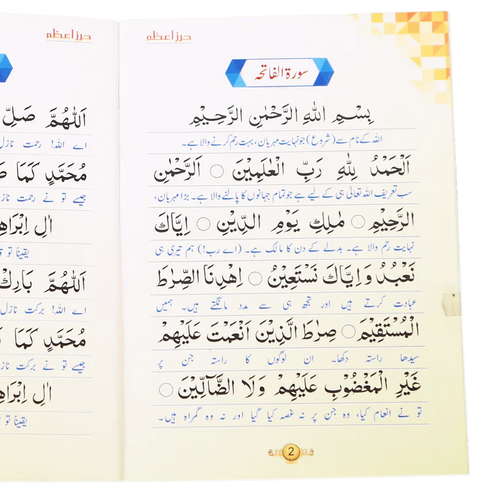 حرز اعظم
سورۃ الفاتحہ
بِسْمِ اللهِ الرَّحْمٰنِ الرَّحِيْمِ
اللہ کے نام سے (شروع) جو نہایت مہربان، بہت رحم کرنے والا ہے۔
اَلْحَمْدُ لِلّٰهِ رَبِّ الْعٰلَمِيْنَ ○ الرَّحْمٰنِ
سب تعریف اللہ تعالیٰ ہی کے لیے ہے جو تمام جہانوں کا پالنے والا ہے۔ بڑا مہربان،
الرَّحِيْمِ ○ مٰلِكِ يَوْمِ الدِّيْنِ ○ اِيَّاكَ
نہایت رحم والا ہے۔ بدلے کے دن کا مالک ہے۔ (اے رب!) ہم تیری ہی
نَعْبُدُ وَاِيَّاكَ نَسْتَعِيْنُ ○ اِهْدِنَا الصِّرَاطَ
عبادت کرتے ہیں اور تجھ ہی سے مدد مانگتے ہیں۔ ہمیں
الْمُسْتَقِيْمَ ○ صِرَاطَ الَّذِيْنَ اَنْعَمْتَ عَلَيْهِمْ
سیدھا راستہ دکھا۔ ان لوگوں کا راستہ جن پر
غَيْرِ الْمَغْضُوْبِ عَلَيْهِمْ وَلَا الضَّآلِّيْنَ ○
تو نے انعام کیا، وہ جن پر نہ غصہ کیا گیا اور نہ وہ گمراہ ہیں۔
2
حرز اعظم
اَللّٰهُمَّ صَلِّ
اے اللہ! رحمت نازل
مُحَمَّدٍ كَمَا
جیسے تو نے رحمت نازل
اٰلِ
یقیناً تو
اَللّٰهُمَّ بَارِكْ
اے اللہ! برکت نازل
مُحَمَّدٍ كَمَا
جیسے تو نے برکت نازل
اٰلِ
یقیناً تو